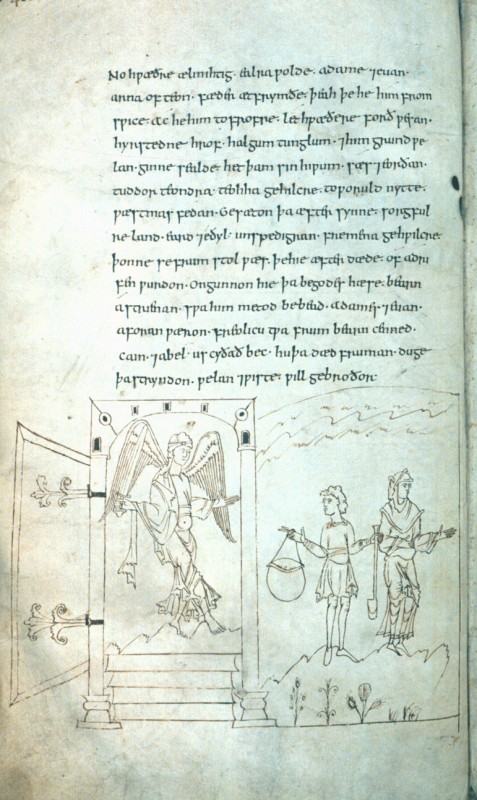 No hƿæðre ælmihtig · ealra ƿolde · adame ⁊euan ·
arna ofteon · fæder ætfrymðe · þeah þe he him from
sƿice · ac he him tofrofre · let hƿæðere forð ƿesan ·
hyrstedne hrof · halgum tunglum · ⁊him grund ƿe
lan · ginne sealde · het þam sinhiƿum · sæs ⁊eorðan ·
tuddor teondra · teohha gehƿilcre · toƿoruld nytte ·
ƿæstmas fedan · Gesæton þa æfter synne · sorgful
re land · eard ⁊eðyl · unspedigran · fremena gehƿilcre ·
þonne se frum stol ƿæs · þehie æfter dæde · of adri
fen ƿurdon · Ongunnon hie þa begodes hæse · bearn
astrienan · sƿa him metod bebead · adames ⁊euan ·
aforan ƿæron · freolicu tƿa frum bearn cenned ·
cain · ⁊abel · us cyðað bec · huþa dæd fruman · duge
þa stryndon · ƿelan ⁊ƿiste · ƿill gebroðor